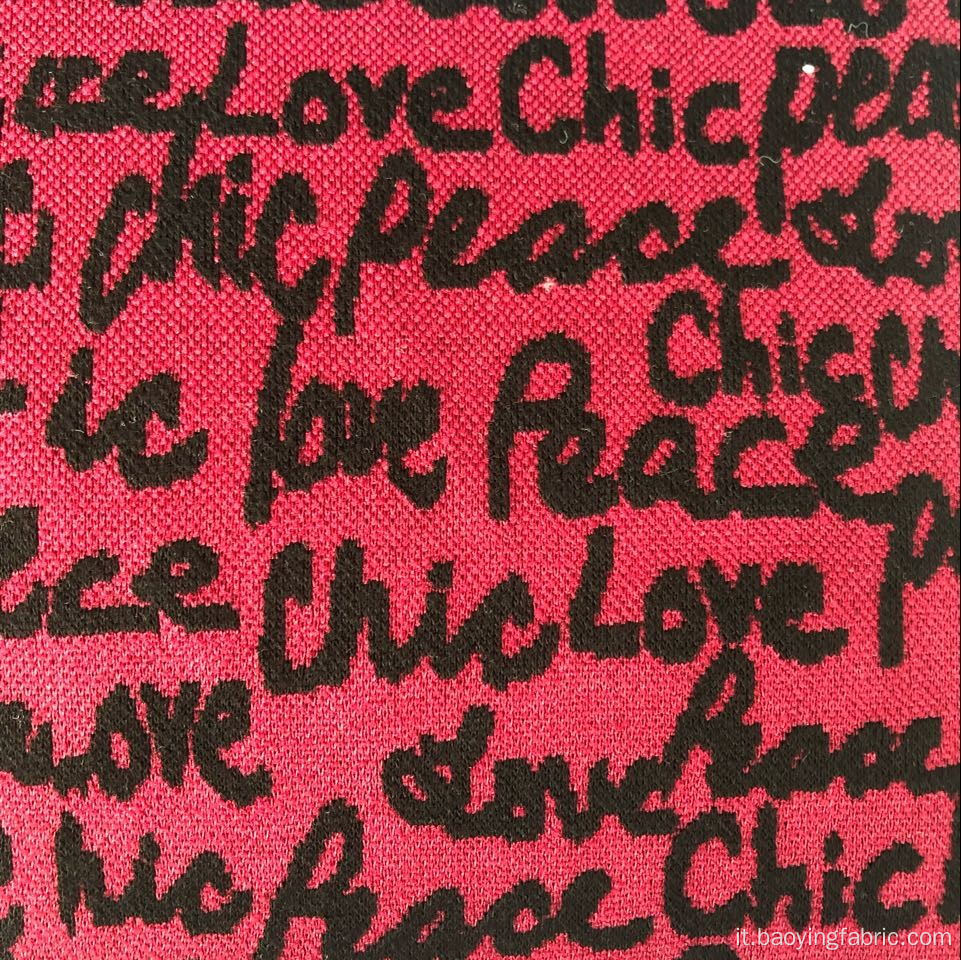 Love Chic pea
chic peace Lo
Chic
ic love Peace
ce Chic Love p
Love Love Peace
hic Peace Chic
it.baoyingfabric.com